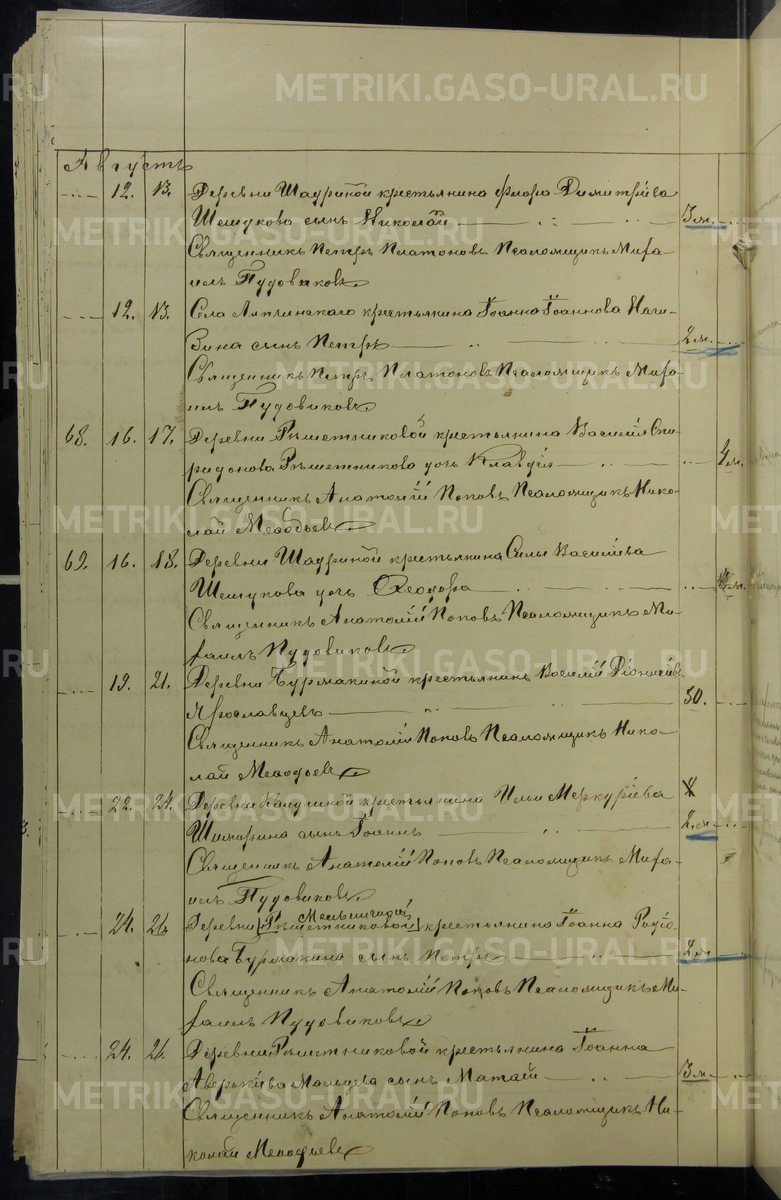 METRIKI.GASO-URAL.RU
Августъ
12. 13. Деревни Шадриной крестьянина Флора Димитріева
Шешукова сынъ Николай 3 м.
Священникъ Петръ Платоновъ Псаломщикъ Миха-
илъ Пудовиковъ
12. 13. Села крестьянина Іоанна Іоаннова Наги-
бина сынъ Петръ 2 м.
Священникъ Петръ Платоновъ Псаломщикъ Миха-
илъ Пудовиковъ
68. 16. 17. Деревни Рѣшетниковой крестьянина Василія Спи-
ридонова Рѣшетникова дочь Клавдія 4 м.
Священникъ Анатолій Поповъ Псаломщикъ Нико-
лай Меѳодьевъ
69. 16. 18. Деревни Шадриной крестьянина Силы Василіева
Шешукова дочь Ѳеодора
Священникъ Анатолій Поповъ Псаломщикъ Ми-
хаилъ Пудовиковъ
19. 21. Деревни Бурмакиной крестьянинъ Василій Діонисіевъ
Ярославцевъ 50.
Священникъ Анатолій Поповъ Псаломщикъ Нико-
лай Меѳодьевъ
22. 24. Деревни крестьянина Ильи Меркуріева
сынъ Іоаннъ 2 м.
Священникъ Анатолій Поповъ Псаломщикъ Миха-
илъ Пудовиковъ
Мельничной
24. 26. Деревни [Рѣшетниковой] крестьянина Іоанна Родіо-
нова Бурмакина сынъ Петръ 2 м
Священникъ Анатолій Поповъ Псаломщикъ Ми-
хаилъ Пудовиковъ
24. 26. Деревни Рѣшетниковой крестьянина Іоанна
Аверькіева Мальцева сынъ Матѳій 3 м.
Священникъ Анатолій Поповъ Псаломщикъ Ни-
колай Меѳодьевъ